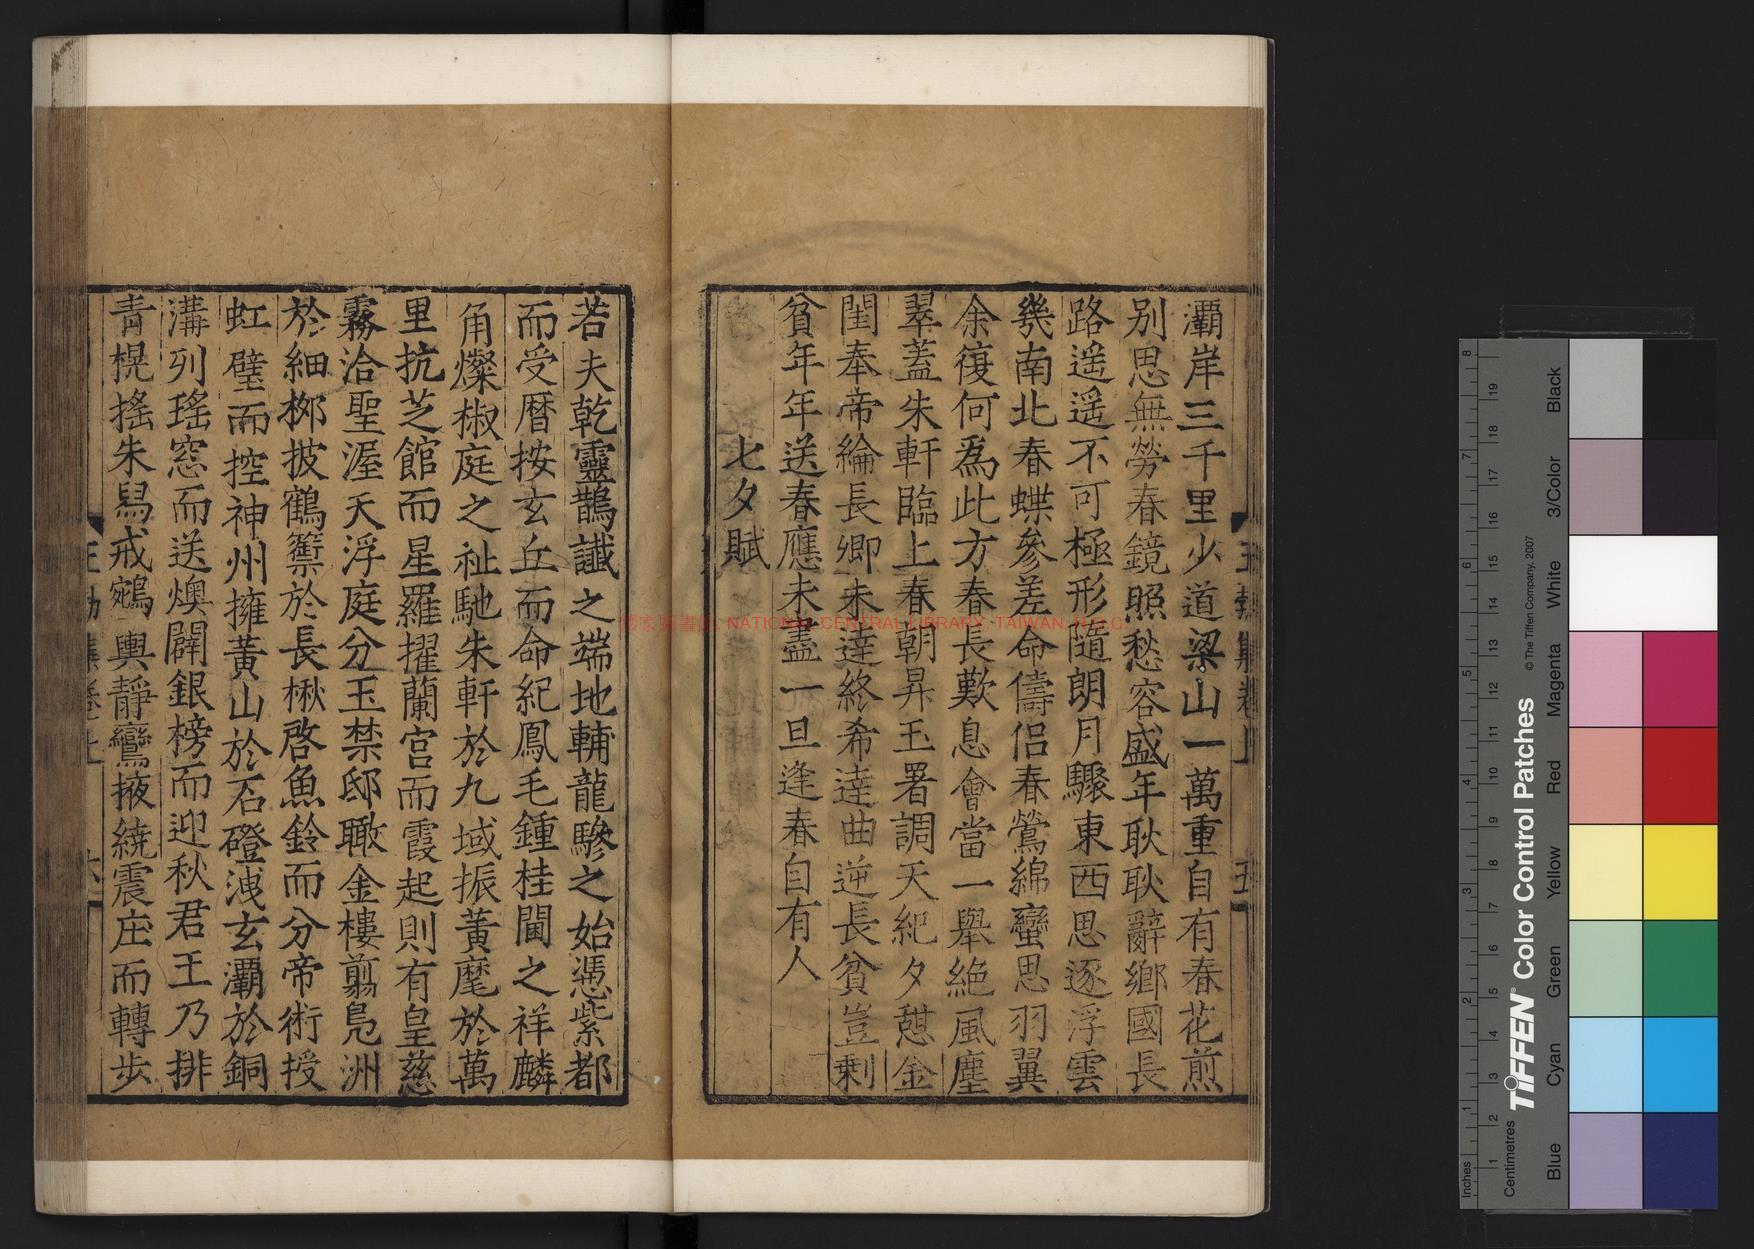 灞岸三千里少道梁山一萬重自有春花煎
别思無勞春鏡照愁容盛年耿耿辭鄉國長
路遥遥不可極形隨朗月驟東西思逐浮雲
幾南北春蝶參差命儔侣春鶯綿蠻思羽翼
余復何爲此方春長歎息會當一舉絶風塵
翠蓋朱軒臨上春朝昇玉署調天紀夕憩金
閨奉帝綸長卿未達終希達曲逆長貧豈剩
貧年年年送春應未盡一旦逢春自有人
七夕賦
若夫乾靈鵲讖之端地輔龍驂之始憑紫都
而受曆按玄丘而命紀鳳毛鍾桂閫之祥麟
角燦椒庭之祉馳朱軒於九域振黃麾於萬
里抗芝館而星羅擢蘭宫而霞起則有皇慈
霧洽聖渥天浮庭分玉禁邸瞰金樓翦凫洲
於細栁披鶴籞於長楸啓魚鈴而分帝術授
虹璧而控神州擁黃山於石磴洩玄灞於銅
溝列瑤窓而送燠闢銀榜而迎秋君王乃排
青幌搖朱舄戒鵷輿靜鸞掖繞震庄而轉步
NATIONAL CENTRAL LIBRARY, TAIWAN, R.O.C.
TIFFEN Color Control Patches
© The Tiffen Company, 2007
Inches
Centimetres
Blue
Cyan
Green
Yellow
Red
Magenta
White
3/Color
Black